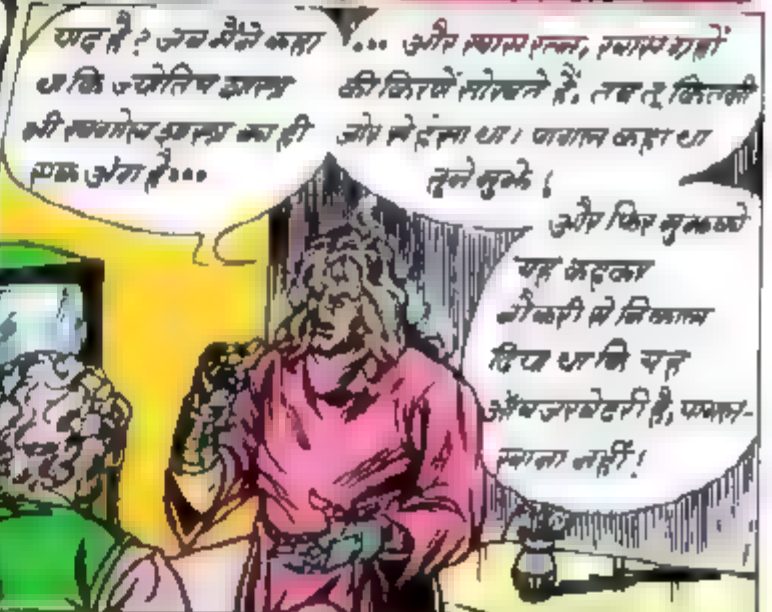 याद है? जब मैंने कहा
था कि ज्योतिष शास्त्र
भी खगोल शास्त्र का ही
एक अंग है...
... और खास रत्न, खास ग्रहों
की किरणें सोखते हैं, तब तू कितनी
जोर से हंसा था। पागल कहा था
तूने मुझे!
और फिर मुझको
यह कहकर
नौकरी से निकाल
दिया था कि यह
ऑब्जरवेटरी है, पागल-
खाना नहीं!